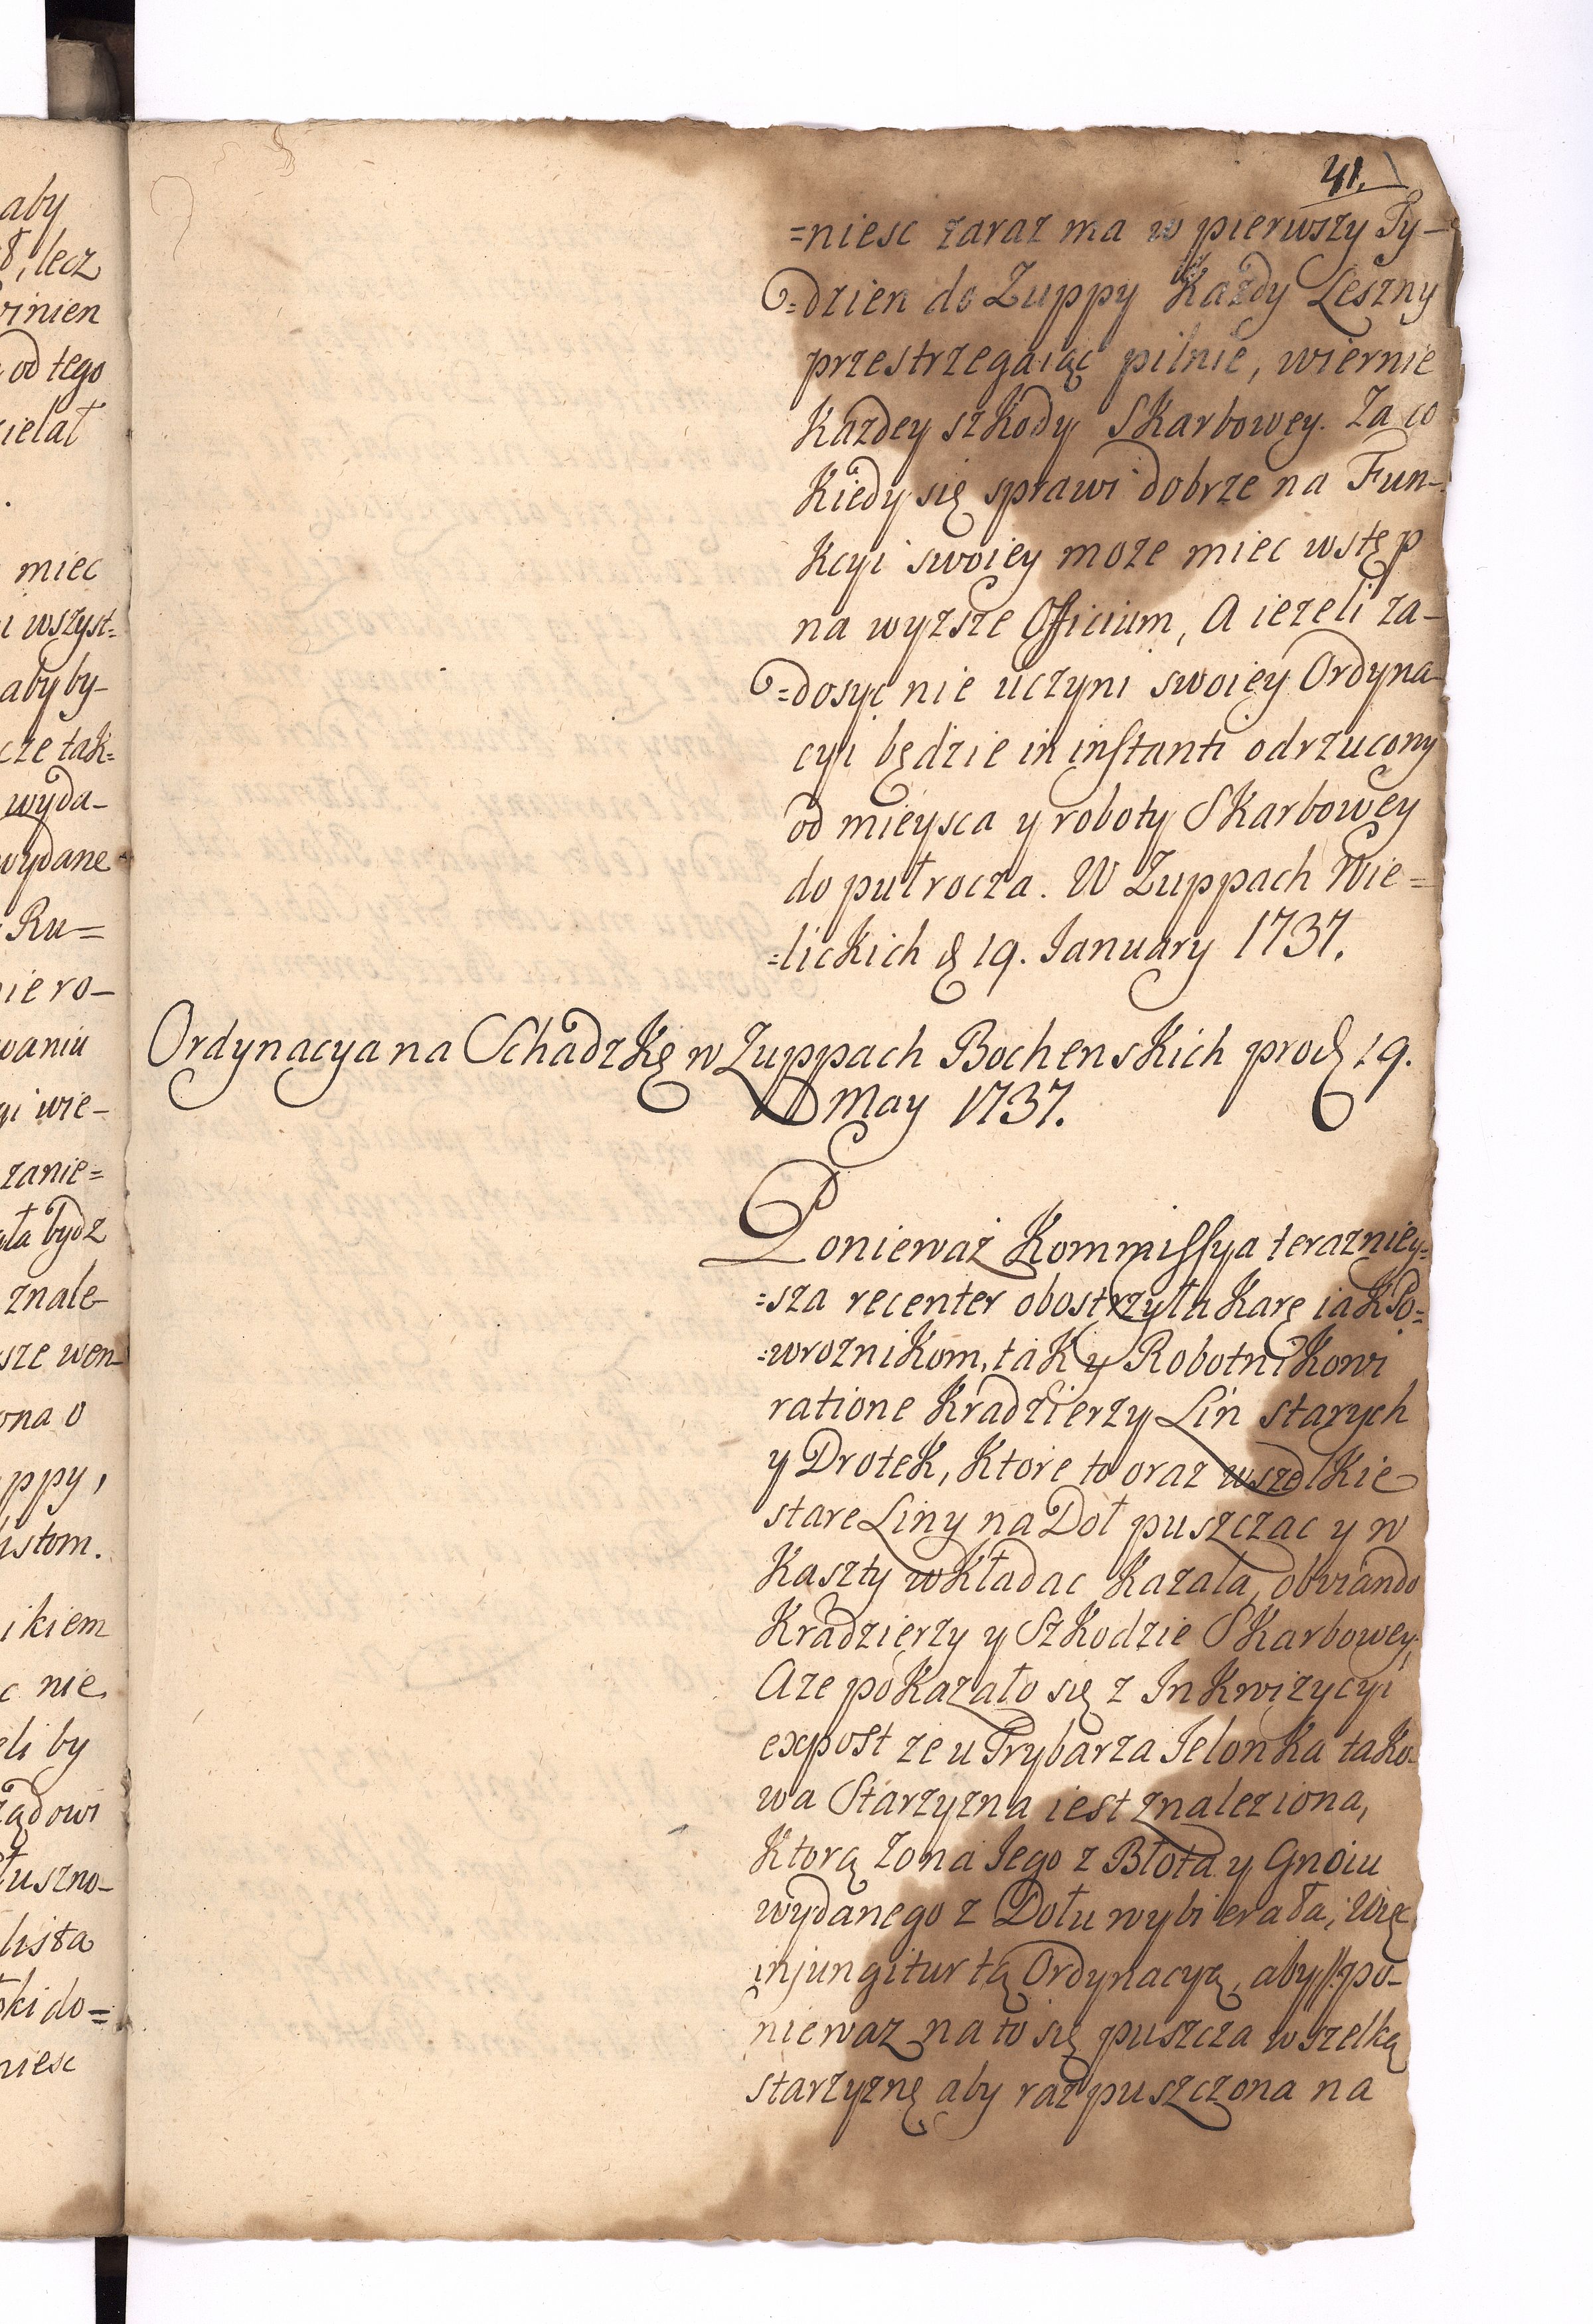 aby
ł, lecz
winien
od tego
cielał
miec
i wszyst=
aby by-
cze tak=
wyda-
wydane
Ru=
nie ro-
waniu
gi wie-
zanie=
ała bydz
znale-
sze wen-
ona o
ppy,
listom.
ikiem
c nie
eli by
ządowi
łuszno-
lista
ki do=
niesc
41.
=niesc zaraz ma w pierwszy Ty-
=dzien do Zuppy Każdy Leszny
przestrzegaiąc pilnie, wiernie
Kazdey szKody SKarbowey. Za co
Kiedy się sprawi dobrze na Fun-
Kcyi swoiey moze miec wstęp
na wyzsze Officium, A iezeli za-
=dosyc nie uczyni swoiey Ordyna-
cyi będzie in instanti odrzucony
od mieysca y roboty SKarbowey
do pułrocza. W Zuppach Wie=
=licKich d 19. January 1737.
Ordynacya na SchadzKę w Zuppach BochensKich pro d 19.
May 1737.
Ponieważ Kommissya terazniey=
=sza recenter obostrzyła Karę iaK Po=
=wrozniKom, taK y RobotniKowi
ratione Kradzierzy Lin starych
y DroteK, Ktore to oraz wszelKie
stare Liny na Doł puszczac y w
Kaszty wKładac Kazała, obviando
Kradzierzy y SzKodzie SKarbowey,
Aze poKazało się z InKwizycyi
expost ze u Trybarza JelonKa taKo-
wa Starzyzna iest znaleziona,
Ktorą Zona Jego z Błota y Gnoiu
wydanego z Dołu wybierała, Więc
injungitur tą Ordynacyą, aby // po-
niewaz na to się puszcza wszelką
starzyznę aby raz puszczona na